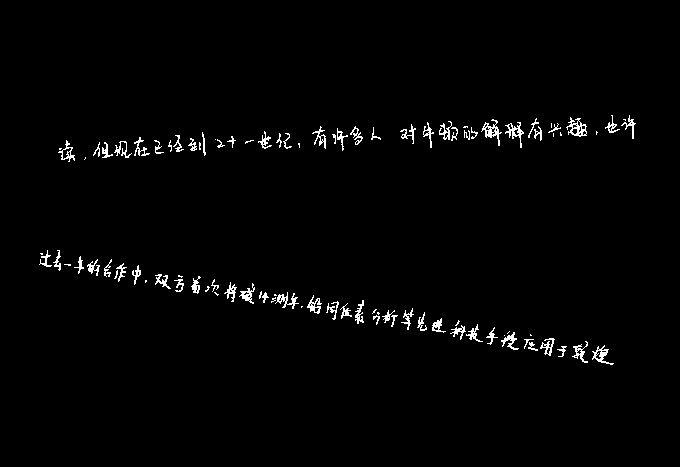 读，但现在已经到二十一世纪，有许多人对牛顿的解释有兴趣，也许
过去一年的合作中，双方首次将碳14测年、铅同位素分析等先进科技手段应用于敦煌